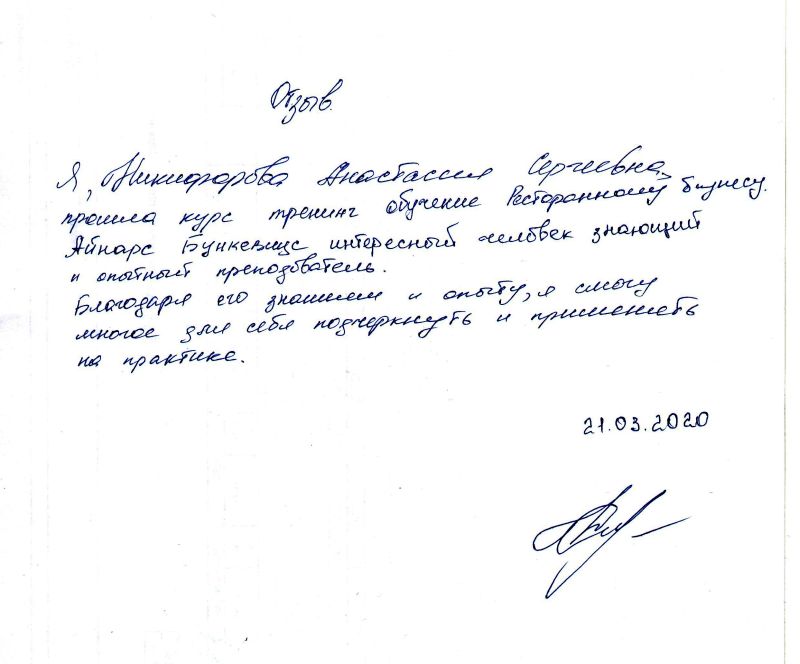 Отзыв.
Я, Никифорова Анастасия Сергеевна,
прошла курс тренинг обучение Ресторанному бизнесу.
Айнарс Бункевицс интересный человек знающий
и опытный преподователь.
Благодаря его знаниям и опыту, я смогу
многое для себя подчеркнуть и применять
на практике.
21.03.2020